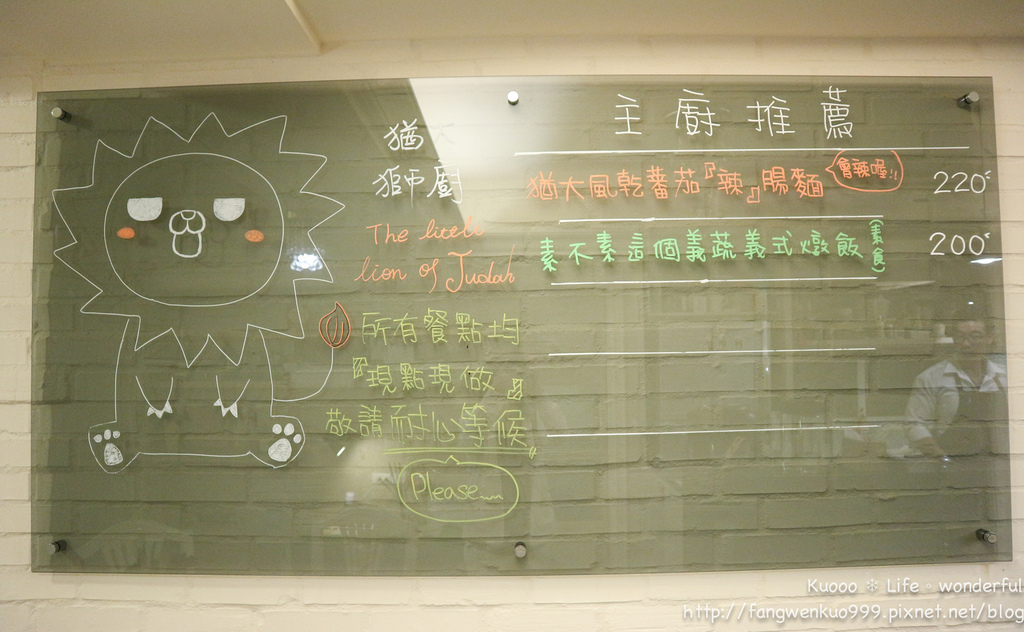 猶大
獅廚
The little
lion of Judah
所有餐點均
『現點現做』
敬請耐心等候
Please
主廚推薦
猶大風乾蕃茄『辣』腸麵 會辣喔!! 220
素不素這個義蔬義式燉飯(素食) 200
Kuooo ＊ Life。wonderful
http://fangwenkuo999.pixnet.net/blog